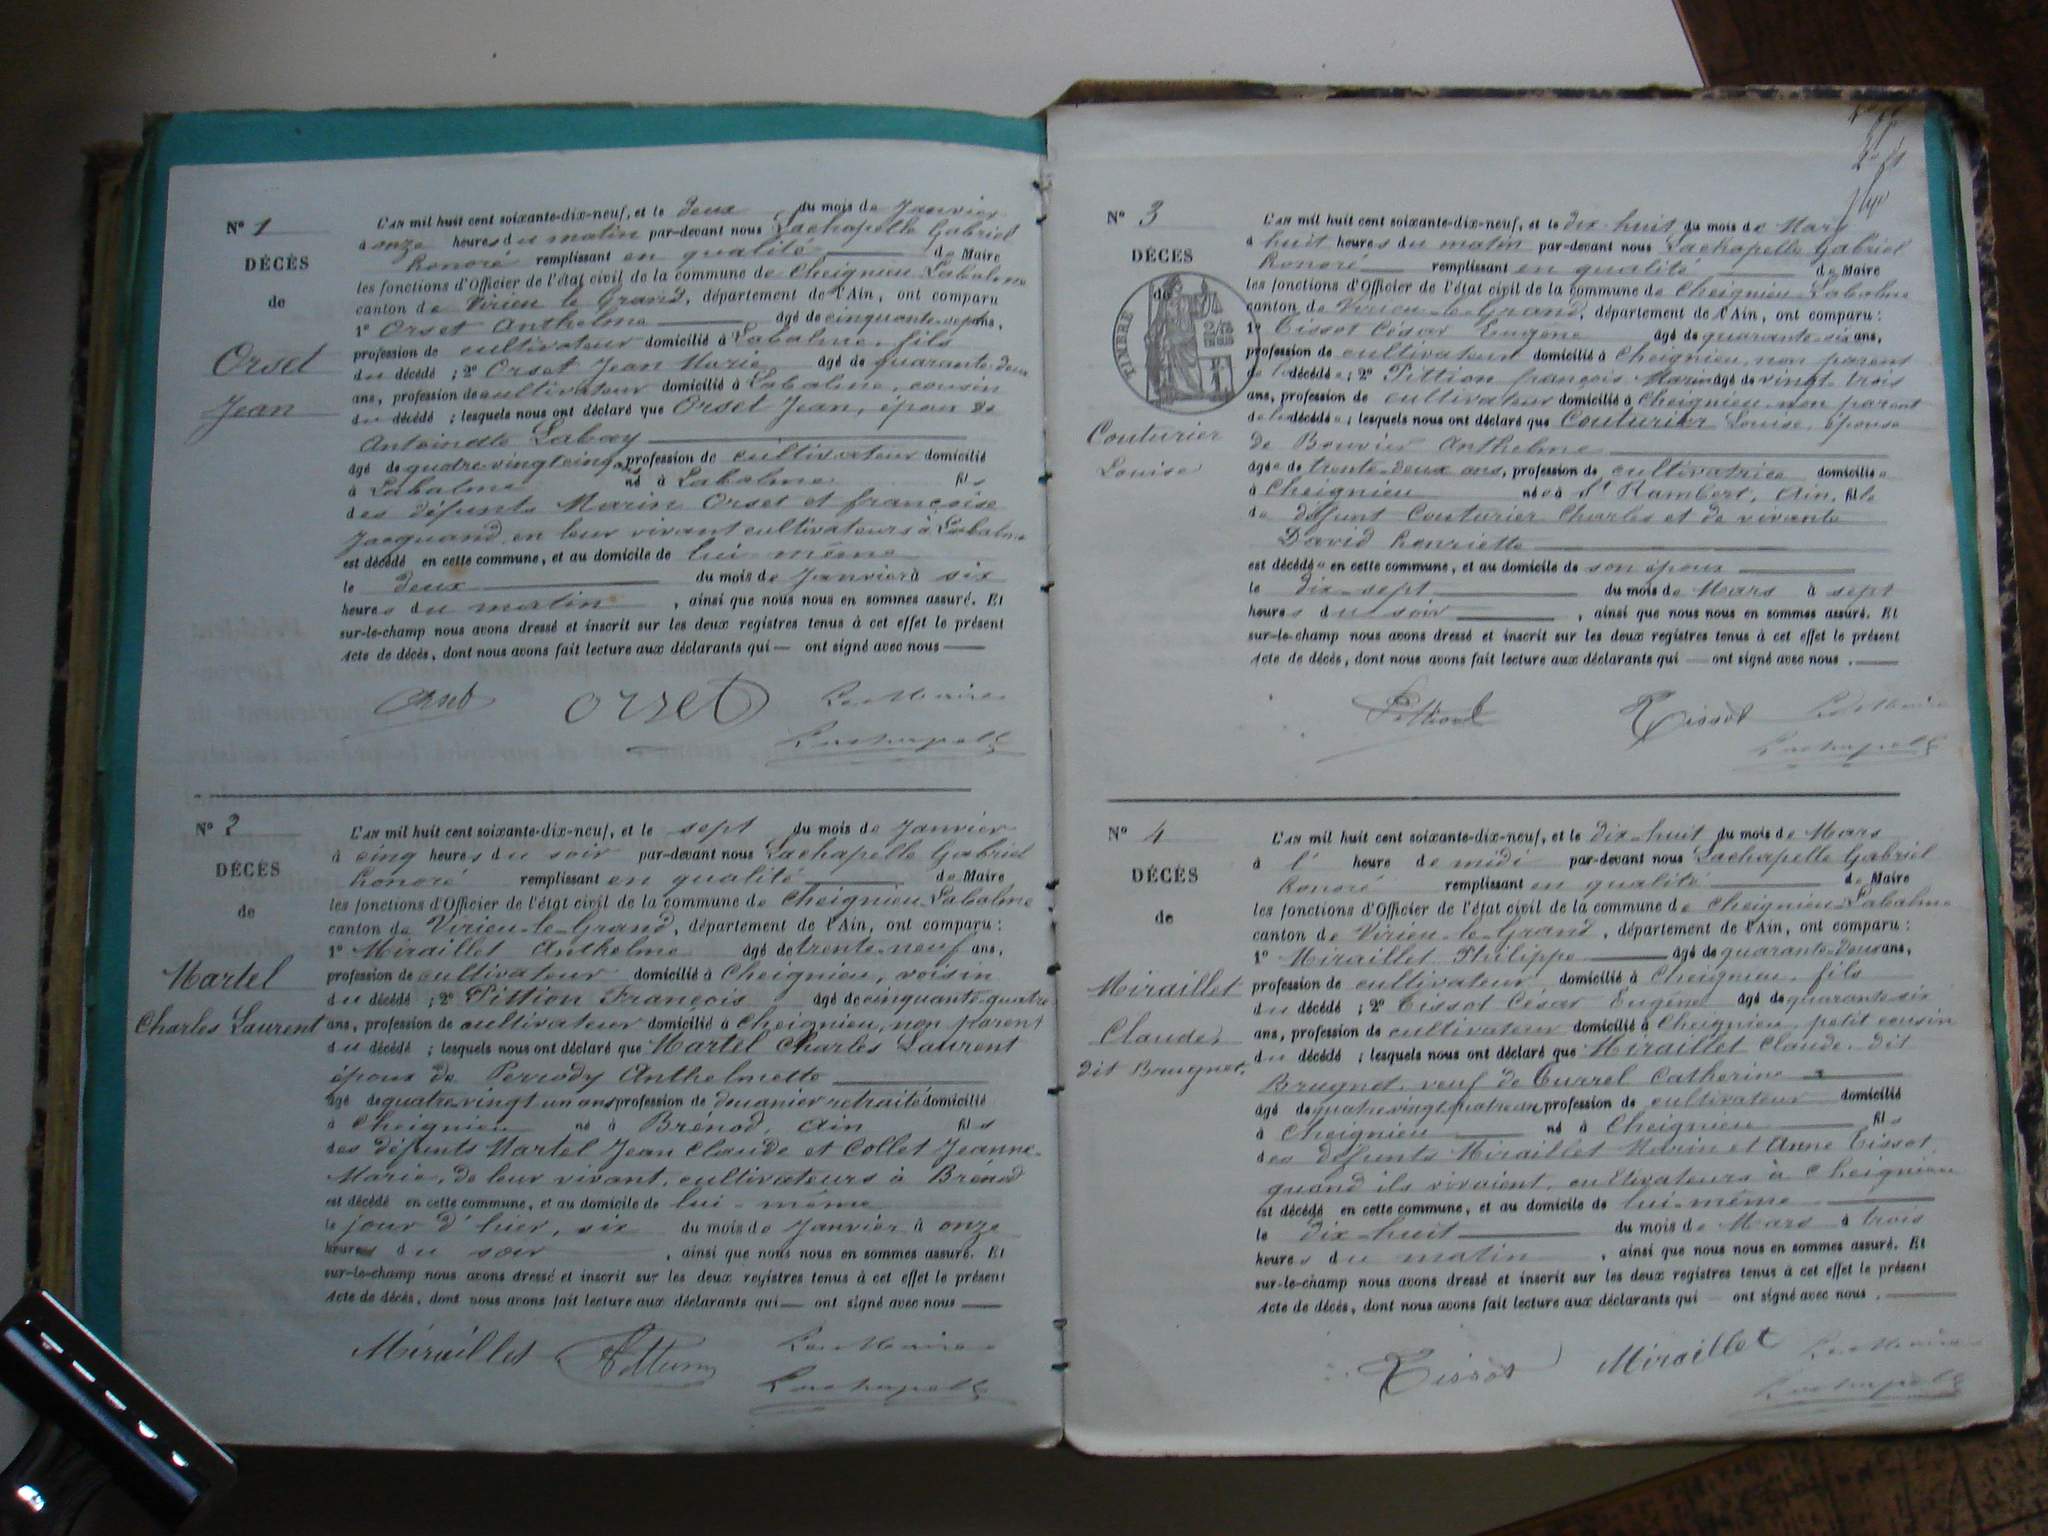 N° 1
DÉCÈS
de
Orset
Jean
L'AN mil huit cent soixante-dix-neuf, et le deux du mois de Janvier
à onze heures du matin par-devant nous Lachapelle Gabriel
honoré remplissant en qualité de Maire
les fonctions d'Officier de l'état civil de la commune de Cheignieu-Labalme
canton de Virieu le Grand, département de l'Ain, ont comparu
1° Orset Anthelme âgé de cinquante-sept ans,
profession de cultivateur domicilié à Labalme, fils
du décédé ; 2° Orset Jean Marie âgé de quarante-deux
ans, profession de cultivateur domicilié à Labalme, cousin
du décédé ; lesquels nous ont déclaré que Orset Jean, époux de
Antoinette
âgé de quatre-vingt cinq ans profession de cultivateur domicilié
à Labalme né à Labalme fils
des défunts Marin Orset et françoise
Jacquand en leur vivant cultivateurs à Labalme
est décédé en cette commune, et au domicile de lui-même
le deux du mois de Janvier à six
heures du matin, ainsi que nous nous en sommes assuré. Et
sur-le-champ nous avons dressé et inscrit sur les deux registres tenus à cet effet le présent
Acte de décès, dont nous avons fait lecture aux déclarants qui — ont signé avec nous —
Orset Orset Le Maire
Lachapelle
N° 2
DÉCÈS
de
Martel
Charles Laurent
L'AN mil huit cent soixante-dix-neuf, et le sept du mois de Janvier
à cinq heures du soir par-devant nous Lachapelle Gabriel
honoré remplissant en qualité de Maire
les fonctions d'Officier de l'état civil de la commune de Cheignieu-Labalme
canton de Virieu-le-Grand, département de l'Ain, ont comparu :
1° Miraillet Anthelme âgé de trente-neuf ans,
profession de cultivateur domicilié à Cheignieu, voisin
du décédé ; 2° Pittion François âgé de cinquante-quatre
ans, profession de cultivateur domicilié à Cheignieu, non parent
du décédé ; lesquels nous ont déclaré que Martel Charles Laurent
époux de Perrody Anthelmette
âgé de quatre-vingt un ans profession de douanier retraité domicilié
à Cheignieu né à Brénod, Ain fils
des défunts Martel Jean Claude et Collet Jeanne-
Marie, de leur vivant, cultivateurs à Brénod
est décédé en cette commune, et au domicile de lui-même
le jour d'hier, six du mois de Janvier à onze
heures du soir, ainsi que nous nous en sommes assuré. Et
sur-le-champ nous avons dressé et inscrit sur les deux registres tenus à cet effet le présent
Acte de décès, dont nous avons fait lecture aux déclarants qui — ont signé avec nous —
Miraillet Pittion Le Maire
Lachapelle
N° 3
DÉCÈS
de
TIMBRE
Couturier
Louise
L'AN mil huit cent soixante-dix-neuf, et le dix-huit du mois de Mars
à huit heures du matin par-devant nous Lachapelle Gabriel
honoré remplissant en qualité de Maire
les fonctions d'Officier de l'état civil de la commune de Cheignieu-Labalme
canton de Virieu-le-Grand, département de l'Ain, ont comparu :
1° Tissot César Eugène âgé de quarante-six ans,
profession de cultivateur domicilié à Cheignieu, non parent
de la décédée ; 2° Pittion françois Marin âgé de vingt-trois
ans, profession de cultivateur domicilié à Cheignieu non parent
de la décédée ; lesquels nous ont déclaré que Couturier Louise, épouse
de Bouvier Anthelme
âgée de trente-deux ans, profession de cultivatrice domiciliée
à Cheignieu née à St Rambert, Ain, fille
de défunt Couturier Charles et de vivante
David henriette
est décédée en cette commune, et au domicile de son époux
le dix-sept du mois de Mars à sept
heures du soir, ainsi que nous nous en sommes assuré. Et
sur-le-champ nous avons dressé et inscrit sur les deux registres tenus à cet effet le présent
Acte de décès, dont nous avons fait lecture aux déclarants qui — ont signé avec nous. —
Pittion Tissot Le Maire
Lachapelle
N° 4
DÉCÈS
de
Miraillet
Claude,
dit Brugnet.
L'AN mil huit cent soixante-dix-neuf, et le dix-huit du mois de Mars
à l' heure de midi par-devant nous Lachapelle Gabriel
honoré remplissant en qualité de Maire
les fonctions d'Officier de l'état civil de la commune de Cheignieu-Labalme
canton de Virieu-le-Grand, département de l'Ain, ont comparu :
1° Miraillet Philippe âgé de quarante-deux ans,
profession de cultivateur domicilié à Cheignieu, fils
du décédé ; 2° Tissot César Eugène âgé de quarante six
ans, profession de cultivateur domicilié à Cheignieu, petit cousin
du décédé ; lesquels nous ont déclaré que Miraillet Claude, dit
Brugnet, veuf de Turrel Catherine
âgé de quatre vingt quatre ans profession de cultivateur domicilié
à Cheignieu né à Cheignieu fils
des défunts Miraillet Marin et Anne Tissot,
quand ils vivaient, cultivateurs à Cheignieu
est décédé en cette commune, et au domicile de lui-même
le dix-huit du mois de Mars à trois
heures du matin, ainsi que nous nous en sommes assuré. Et
sur-le-champ nous avons dressé et inscrit sur les deux registres tenus à cet effet le présent
Acte de décès, dont nous avons fait lecture aux déclarants qui — ont signé avec nous. —
Tissot Miraillet Le Maire
Lachapelle